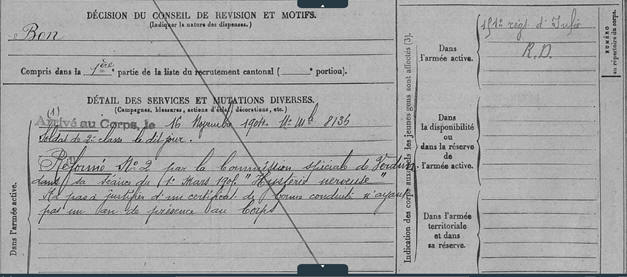 DÉCISION DU CONSEIL DE REVISION ET MOTIFS.
(Indiquer la nature des dispenses.)
Bon
Compris dans la 1ère partie de la liste du recrutement cantonal ( portion).
DÉTAIL DES SERVICES ET MUTATIONS DIVERSES.
(Campagnes, blessures, actions d'éclat, décorations, etc.)
(1)
Arrivé au Corps, le 16 Novembre 1904. Nº Mle 8135
Soldat de 2e classe le dit jour.
Réformé Nº 2 par la Commission spéciale de Verdun
dans sa séance du 1er Mars 1905 "Hystérie nerveuse"
N'a pas à justifier d'un certificat de bonne conduite n'ayant
pas un an de présence au Corps
Dans l'armée active.
Indication des corps auxquels les jeunes gens sont affectés (3).
Dans
l'armée active.
régt d'Infie
R.D.
Dans
la disponibilité
ou dans
la réserve
de l'armée active.
Dans l'armée
territoriale
et dans
sa réserve.
NUMÉRO
au répertoire du corps.